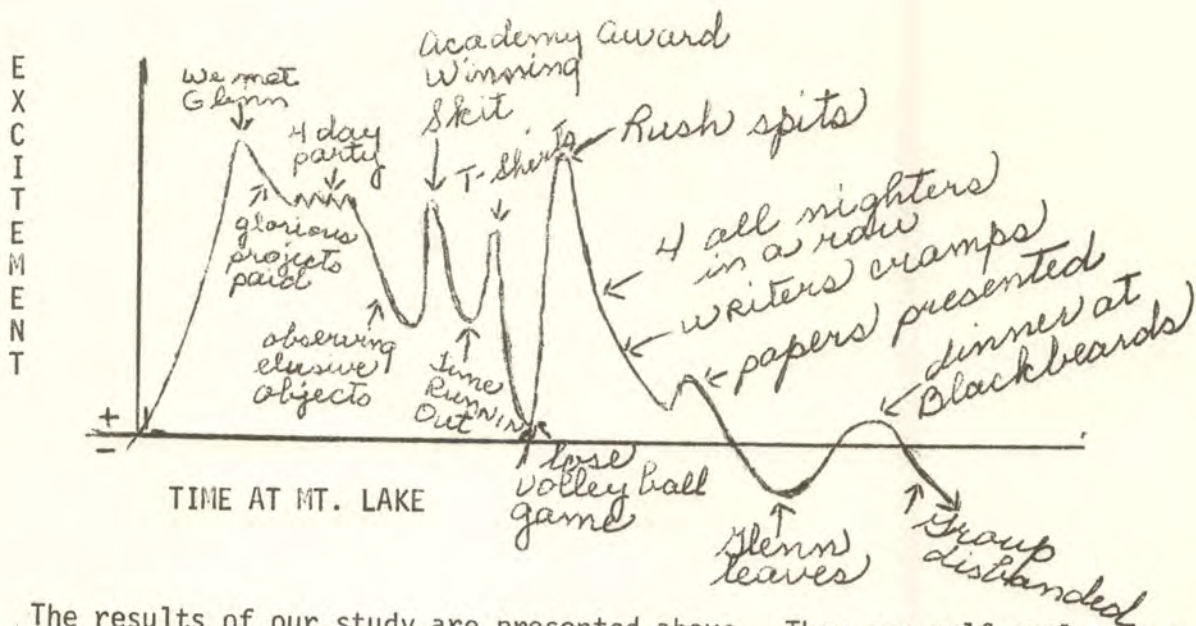 EXCITEMENT
We met
Glenn
4 day
party
glorious
projects
paid
observing
elusive
objects
Academy Award
Winning
Skit
T-Shirts
time
RUNNIN
Out
Rush spits
4 all nighters
in a raw
writers cramps
papers presented
dinner at
Blackbeards
+
-
TIME AT MT. LAKE
lose
volley ball
game
Glenn
leaves
Group
disbanded
The results of our study are presented above.